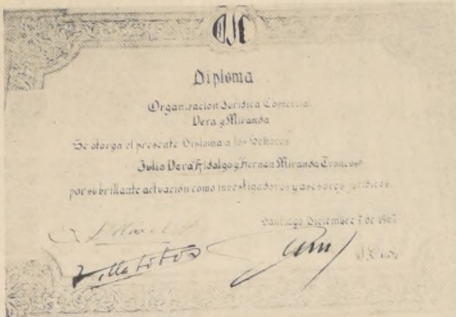 OJC
Diploma
Organización Jurídica Comercial
Vera y Miranda
Se otorga el presente Diploma a los Señores
Julio Vera Hidalgo y Hernán Miranda Troncoso
por su brillante actuación como investigadores y asesores jurídicos.
Santiago Diciembre 7 de